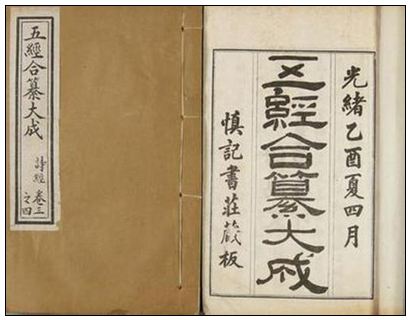 五經合纂大成
詩經
卷三
之四
光緒乙酉夏四月
五經合纂大成
慎記書莊蔵板